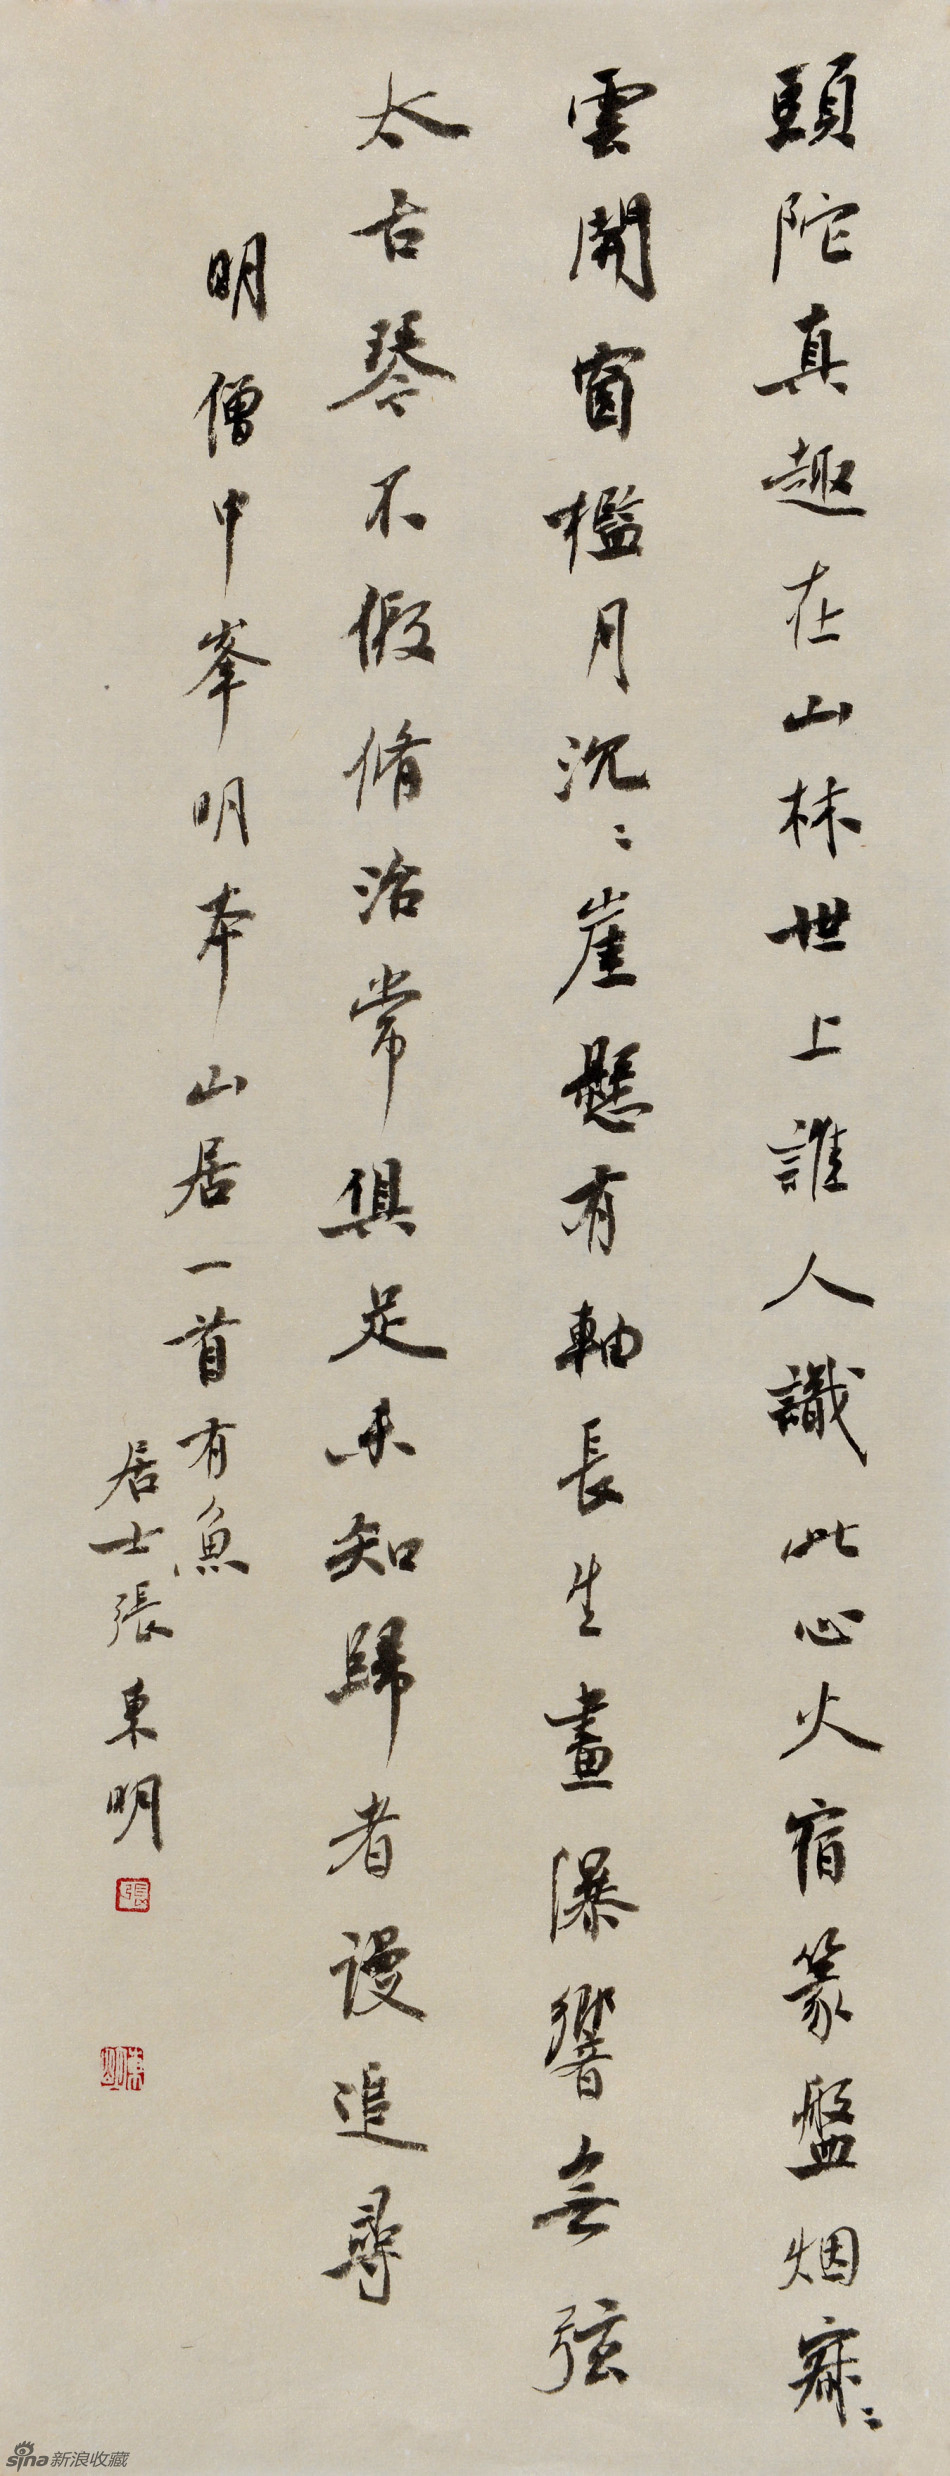 頭陀真趣在山林世上誰人識此心火宿篆盤烟寂〻
雲開窗檻月沉〻崖懸有軸長生畫瀑響無弦
太古琴不假修治常俱足未知歸者谩追尋
明僧中峯明本山居一首有魚
居士張東明
張
東明
sina新浪收藏